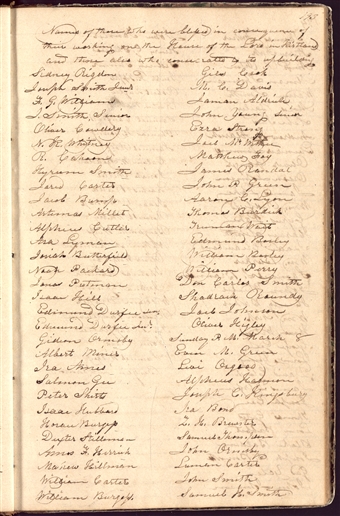 Names of those who were blessed in consequence of
their working on the House of the Lord in Kirtland
and those also who consecrated to its upbuilding
Sidney Rigdon
Joseph Smith Juni
F. G. Williams
J. Smith Senior
Oliver Cowdery
N. K. Whitney
R. Cahoon
Hyrum Smith
Jared Carter
Jacob Bump
Artemus Millet
Alpheus Cutler
Asa Lyman
Josiah Butterfield
Noah Packard
Jonas Putman
Isaac Hill
Edmund Durfee Sen.
Edmund Durfee Jun.
Gideon Ormsby
Albert Miner
Ira Ames
Salmon Gee
Peter Shirts
Isaac Hubbard
Horace Burgess
Dexter Stillman
Amos F. Herrick
Mayhew Hillman
William Carter
William Burgess
Giles Cook
M. C. Davis
Jaman Aldrich
John Young Senior
Ezra Strong
Joel McWithy
Matthew Foy
James Randal
John P. Green
Aaron E. Lyon
Thomas Burdick
Truman Wait
Edmund Bosley
William Bosley
William Perry
Don Carlos Smith
Shadrach Roundy
Joel Johnson
Oliver Higley
Sunday P.M. March 8
Evan M. Green
Levi Osgood
Alpheus Harmon
Joseph C. Kingsbury
Ira Bond
Z. H. Brewster
Samuel Thompson
John Ormsby
Luman Carter
John Smith
Samuel H. Smith